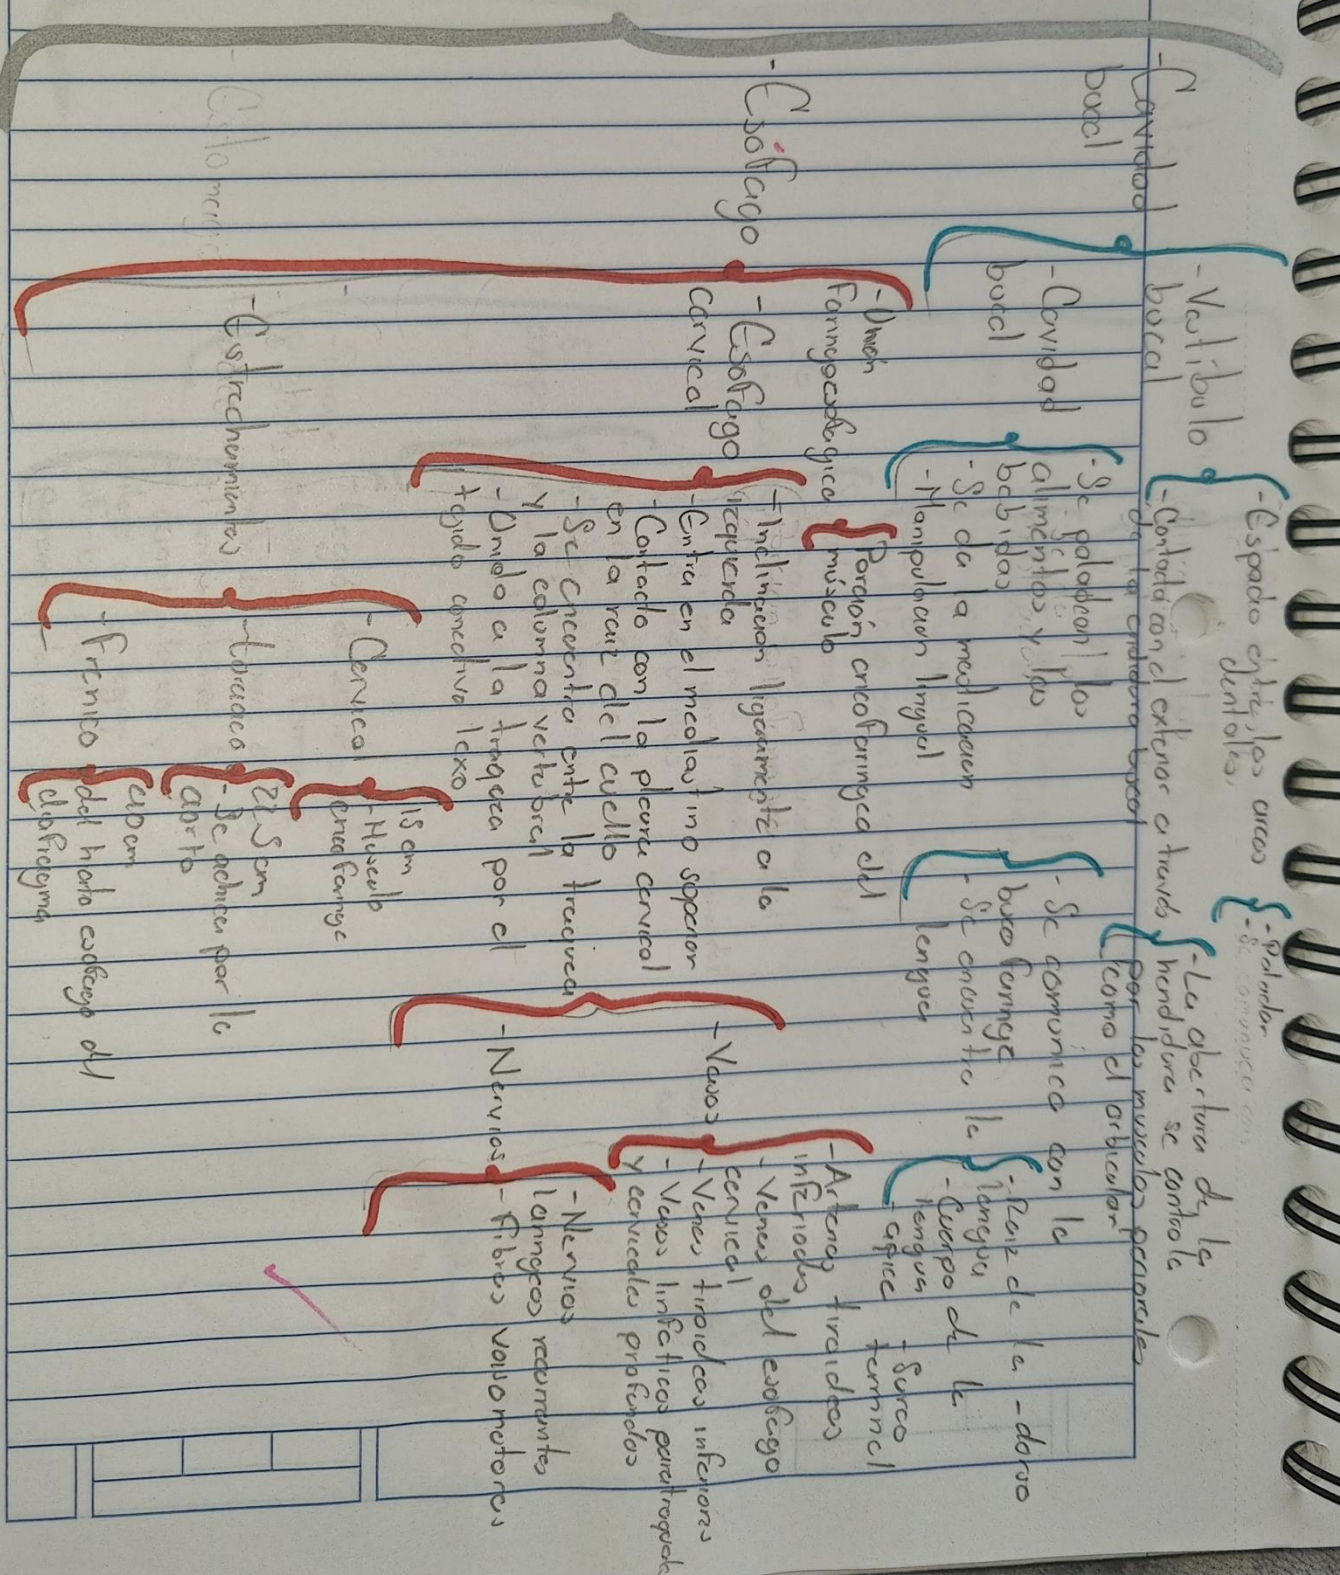 -Cavidad
bucal
-Vestibulo
bucal
-Espacio entre los arcos
dentales.
-Paladar
-Se comunica con
-Contacta con el exterior a través
de la endidura bucal
-La abertura de la
hendidura se controla
por los musculos periorales
como el orbicular
-Cavidad
bucal
-Se paladean los
alimentos y las
bebidas
-Se da la masticacion
-Manipulacion lingual
-Se comunica con la
bucofaringe
-Se encuentra la
lengua
-Raiz de la
lengua
-Cuerpo de la
lengua
-apice
-dorso
-Surco
terminal
-Esófago
-Unión
Faringoesofagica
Porción cricofaringea del
músculo
-Esofago
cervical
-Inclinacion ligeramente a la
izquierda
-Entra en el mediastino superior
-Contacto con la pleura cervical
en la raiz del cuello
-Se encuentra ente la traquea
y la columna vertebral
-Unido a la traquea por el
tejido conectivo laxo
-Vasos
-Arterias tiroideas
inferiodes
-Venas del esofago
cervical
-Venas tiroideas inferiores
-Vasos linfaticos paratraqueales
y cervicales profundos
-Nervios
-Nervios
laringeos recurrentes
-Fibras vasomotoras
-Estomago
-Estrechamientos
-Cervical
15 cm
-Musculo
-Toracico
22.5 cm
-Se achica por la
aorta
-Frenico
40 cm
del hiato esofago del
diafragma